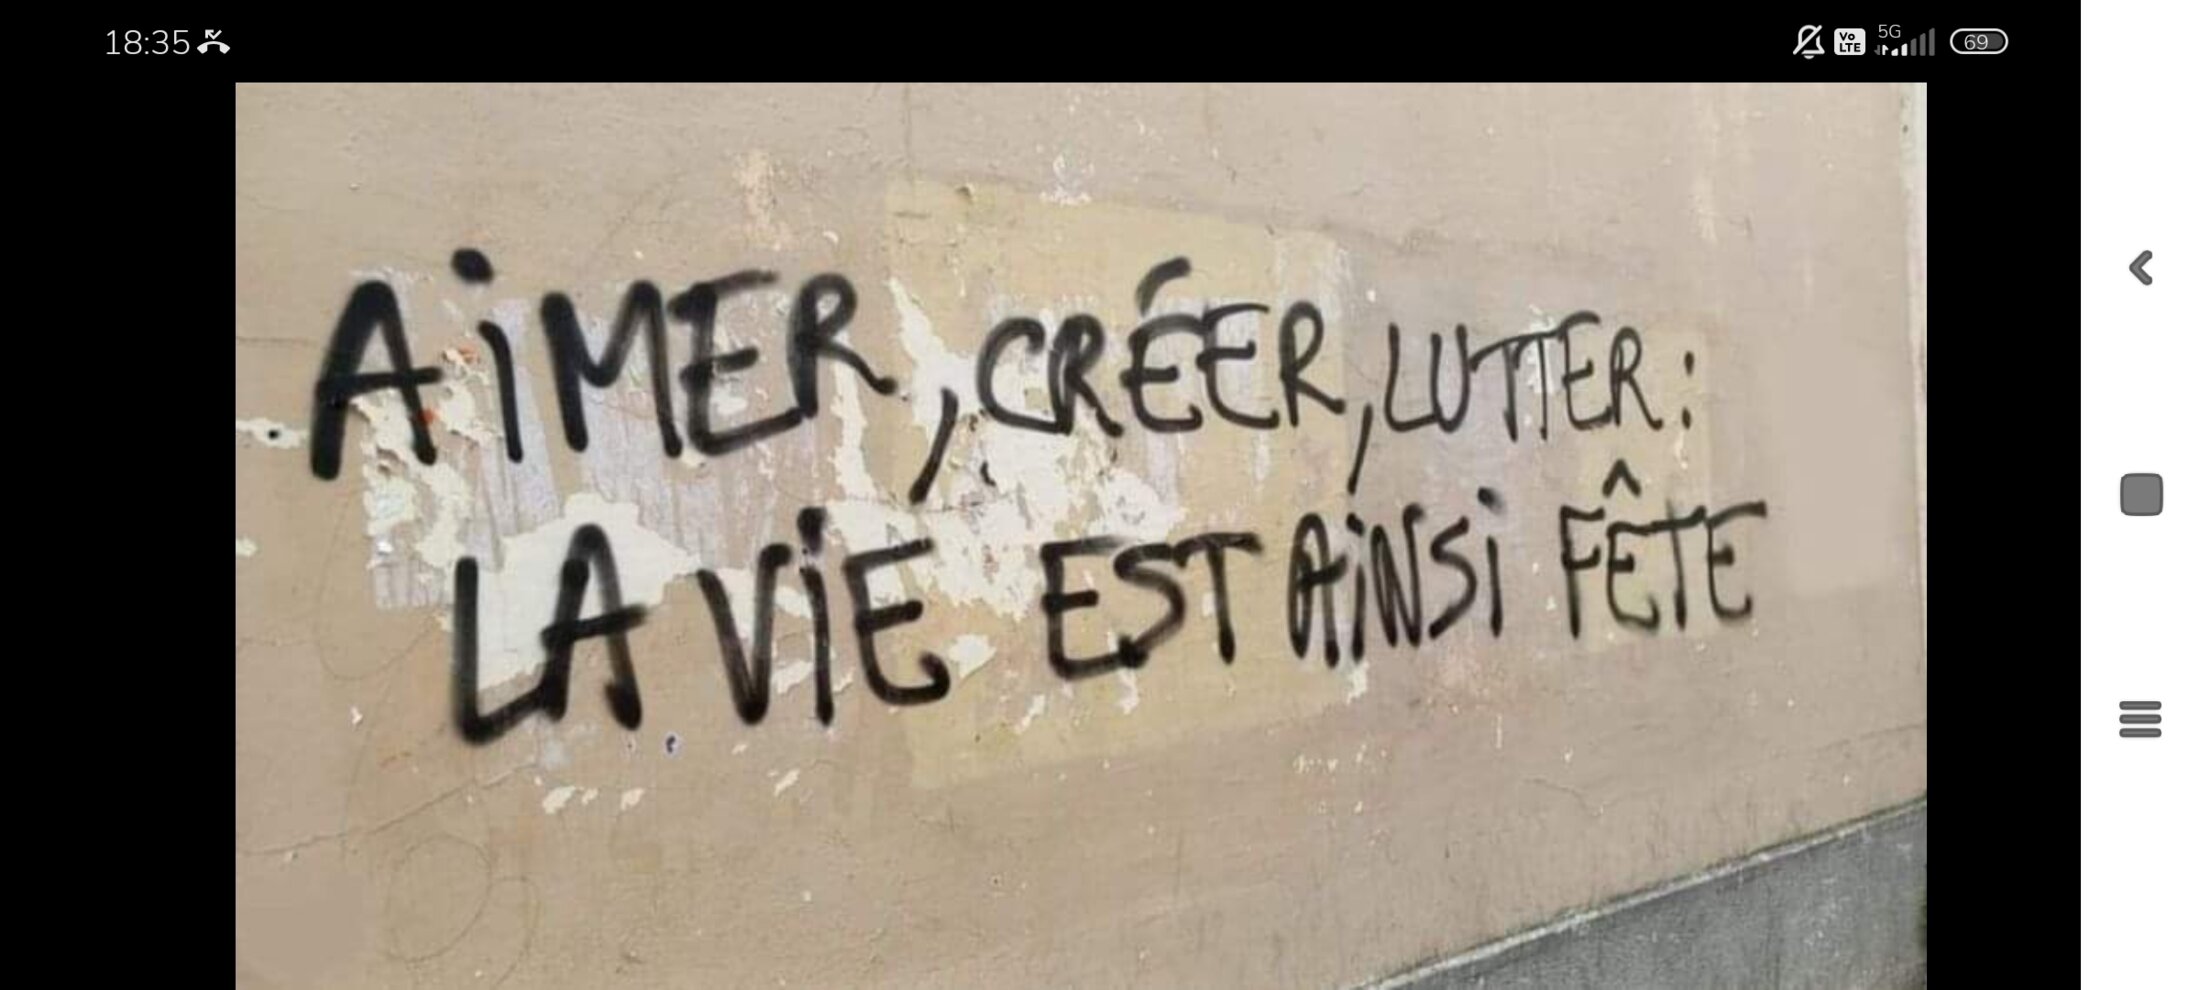 18:35
Vo
LTE
5G
69
AiMER, CRÉER, LUTTER :
LA ViE EST AiNSi FÊTE